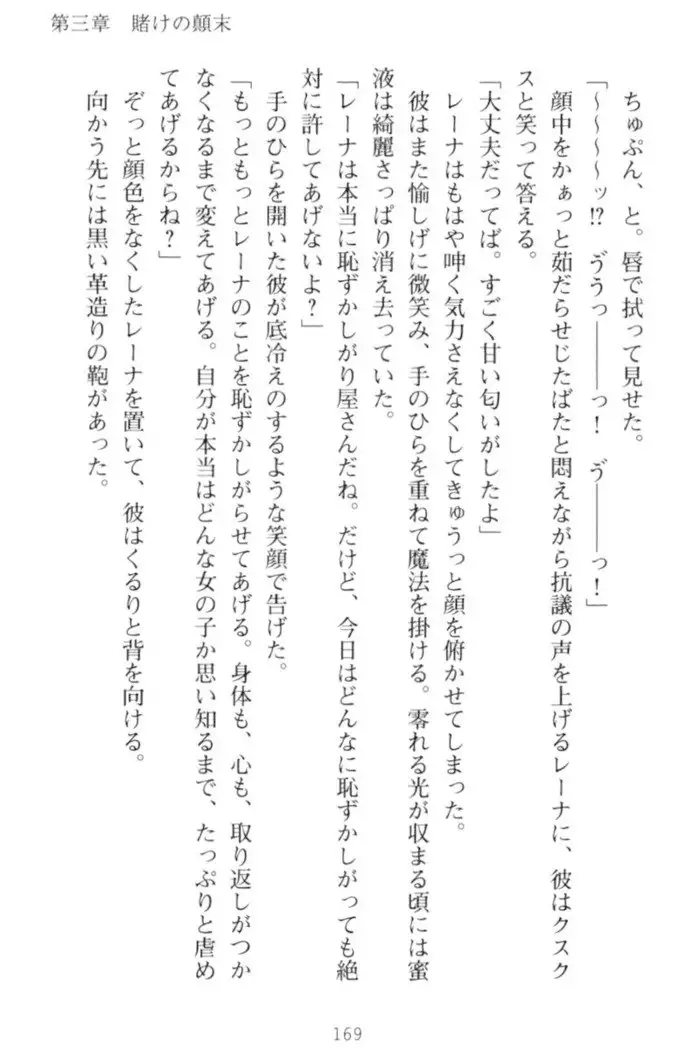 第三章　賭けの顛末
ちゅぷん、と。唇で拭って見せた。
「～～～～ッ!?　ゔうっ――――っ！　ゔ――――っ！」
顔中をかぁっと茹だらせじたばたと悶えながら抗議の声を上げるレーナに、彼はクスク
スと笑って答える。
「大丈夫だってば。すごく甘い匂いがしたよ」
レーナはもはや呻く気力さえなくしてきゅうっと顔を俯かせてしまった。
彼はまた愉しげに微笑み、手のひらを重ねて魔法を掛ける。零れる光が収まる頃には蜜
液は綺麗さっぱり消え去っていた。
「レーナは本当に恥ずかしがり屋さんだね。だけど、今日はどんなに恥ずかしがっても絶
対に許してあげないよ？」
手のひらを開いた彼が底冷えのするような笑顔で告げた。
「もっともっとレーナのことを恥ずかしがらせてあげる。身体も、心も、取り返しがつか
なくなるまで変えてあげる。自分が本当はどんな女の子か思い知るまで、たっぷりと虐め
てあげるからね？」
ぞっと顔色をなくしたレーナを置いて、彼はくるりと背を向ける。
向かう先には黒い革造りの鞄があった。
169